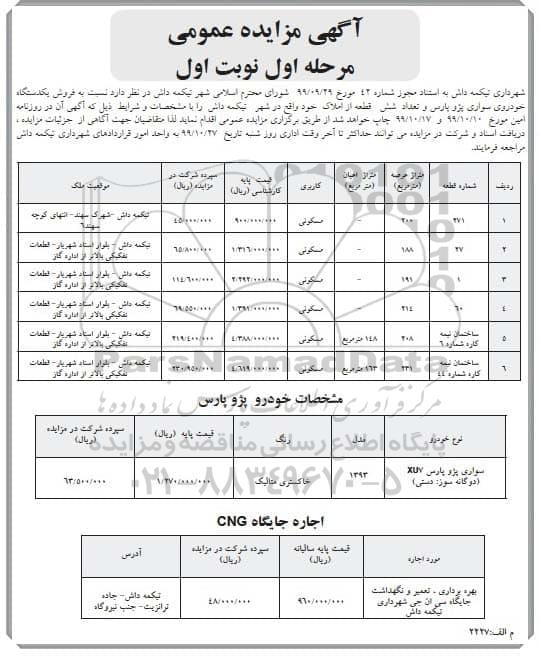 آگهی مزایده عمومی
مرحله اول نوبت اول
شهرداری تیکمه داش به استناد مجوز شماره ۴۲ مورخ ۹۹/۰۹/۲۹ شورای محترم اسلامی شهر تیکمه داش در نظر دارد نسبت به فروش یکدستگاه
خودروی سواری پژو پارس و تعداد شش قطعه از املاک خود واقع در شهر تیکمه داش را با مشخصات و شرایط ذیل که آگهی آن در روزنامه
امین مورخ ۹۹/۱۰/۱۰ و ۹۹/۱۰/۱۷ چاپ خواهد شد از طریق برگزاری مزایده عمومی اقدام نماید لذا متقاضیان جهت آگاهی از جزئیات مزایده ،
دریافت اسناد و شرکت در مزایده می توانند حداکثر تا آخر وقت اداری روز شنبه تاریخ ۹۹/۱۰/۲۷ به واحد امور قراردادهای شهرداری تیکمه داش
مراجعه فرمایند.
ردیف شماره قطعه متراژ عرصه (مترمربع) متراژ اعیان (متر مربع) کاربری قیمت پایه کارشناسی (ریال) سپرده شرکت در مزایده (ریال) موقعیت ملک
۱ ۲۷۱ ۲۰۰ - مسکونی ۹۰۰/۰۰۰/۰۰۰ ۴۵/۰۰۰/۰۰۰ تیکمه داش -شهرک سهند- انتهای کوچه سهند۶
۲ ۲۷ ۱۸۸ - مسکونی ۱/۳۱۶/۰۰۰/۰۰۰ ۶۵/۸۰۰/۰۰۰ تیکمه داش - بلوار استاد شهریار- قطعات تفکیکی بالاتر از اداره گاز
۳ ۱ ۱۹۱ - مسکونی ۲/۲۹۲/۰۰۰/۰۰۰ ۱۱۴/۶۰۰/۰۰۰ تیکمه داش - بلوار استاد شهریار- قطعات تفکیکی بالاتر از اداره گاز
۴ ۶۰ ۲۱۴ - مسکونی ۱/۳۹۱/۰۰۰/۰۰۰ ۶۹/۵۵۰/۰۰۰ تیکمه داش - بلوار استاد شهریار- قطعات تفکیکی بالاتر از اداره گاز
۵ ساختمان نیمه کاره شماره ۶ ۲۰۸ ۱۴۸ مترمربع مسکونی ۴/۳۸۸/۰۰۰/۰۰۰ ۲۱۹/۴۰۰/۰۰۰ تیکمه داش - بلوار استاد شهریار- قطعات تفکیکی بالاتر از اداره گاز
۶ ساختمان نیمه کاره شماره ۴۴ ۲۳۱ ۱۶۳ مترمربع مسکونی ۴/۶۱۹/۰۰۰/۰۰۰ ۲۳۰/۹۵۰/۰۰۰ تیکمه داش - بلوار استاد شهریار- قطعات تفکیکی بالاتر از اداره گاز
ParsNamadData
مرکز فرآوری اطلاعات پارس نماد داده ها
پایگاه اطلاع رسانی مناقصه و مزایده
۰۲۱-۸۸۳۴۹۶۷۰-۵
مشخصات خودرو پژو پارس
نوع خودرو مدل رنگ قیمت پایه (ریال) سپرده شرکت در مزایده (ریال)
سواری پژو پارس XU۷ (دوگانه سوز: دستی) ۱۳۹۳ خاکستری متالیک ۱/۲۷۰/۰۰۰/۰۰۰ ۶۳/۵۰۰/۰۰۰
اجاره جایگاه CNG
مورد اجاره قیمت پایه سالیانه (ریال) سپرده شرکت در مزایده (ریال) آدرس
بهره برداری ، تعمیر و نگهداشت جایگاه سی ان جی شهرداری تیکمه داش ۹۶۰/۰۰۰/۰۰۰ ۴۸/۰۰۰/۰۰۰ تیکمه داش- جاده ترانزیت- جنب نیروگاه
م الف:۲۴۲۷